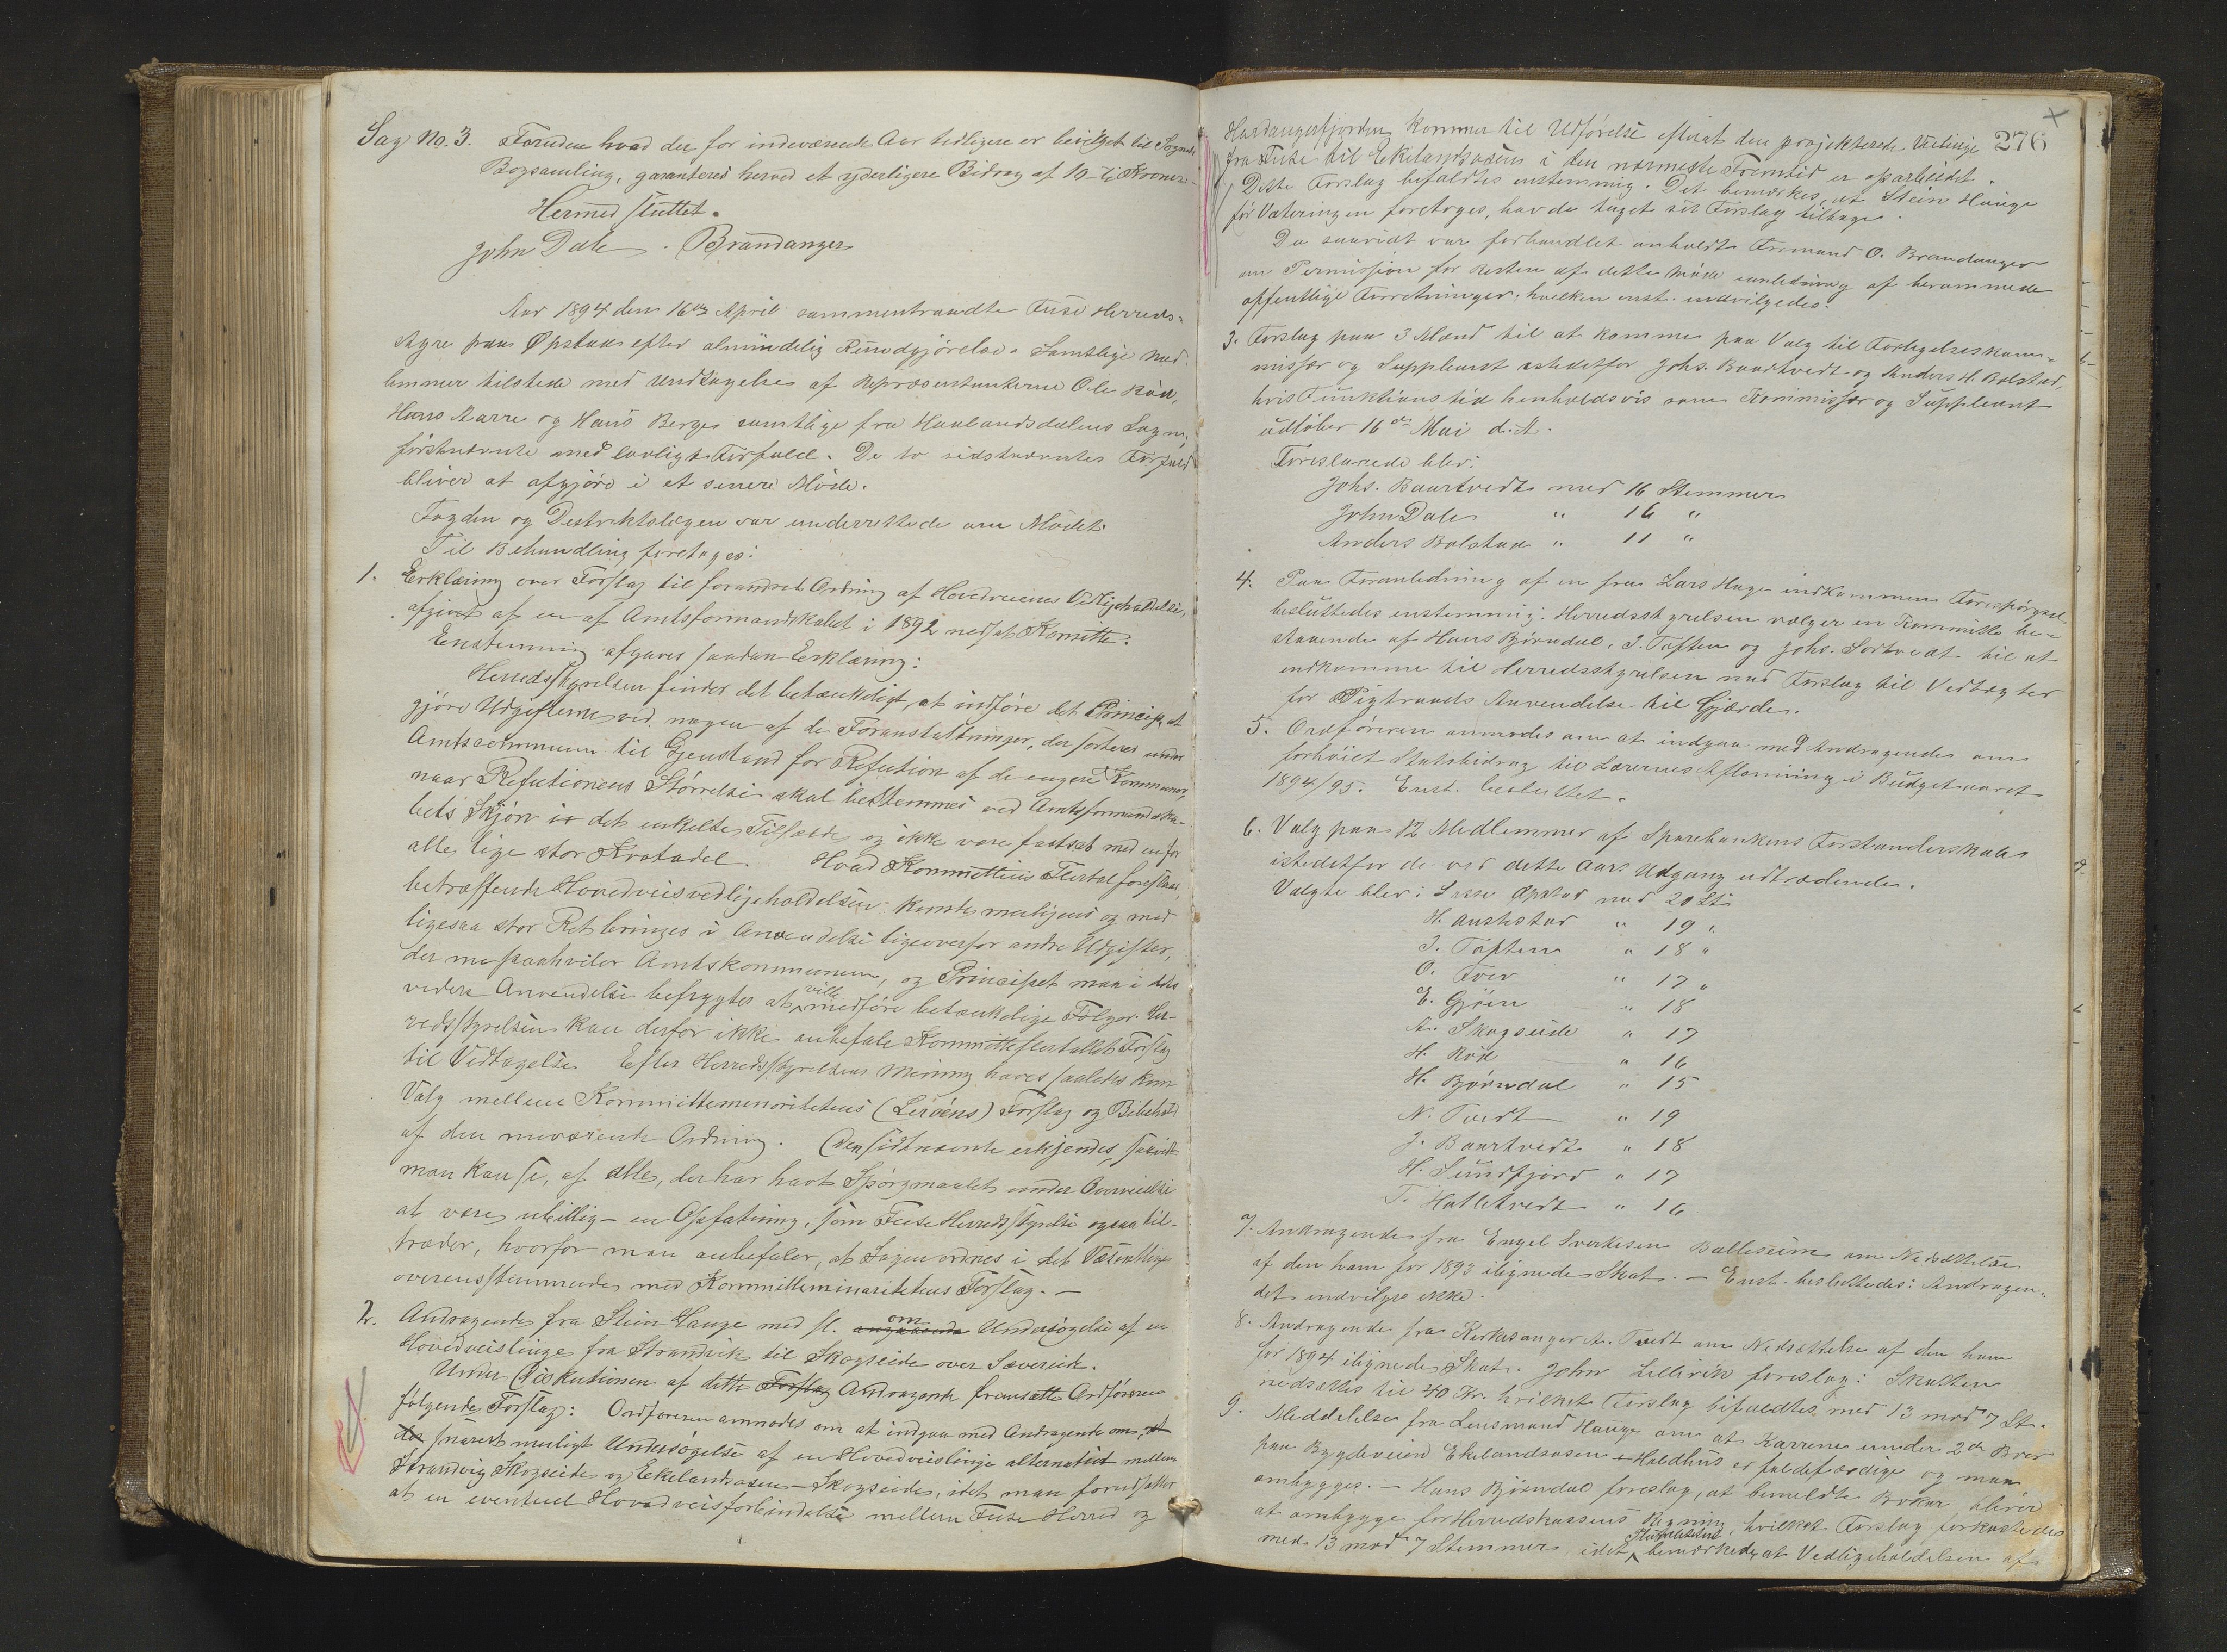 Sag No. 3. Foruden hvad der for indeværende Aar tidligere er bevilget til Sognets
Bogsamling, garanteres herved et yderligere Bidrag af 10 – ti Kroner –
Hermed sluttet.
John Dale. Brandanger
Aar 1894 den 16de April sammentraadte Fuse Herreds-
styre paa Øpstad efter almindelig Kundgjørelse. Samtlige Med-
lemmer tilstede med Undtagelse af Repræsentanterne Ole Röd,
Hans Aarre og Hans Berge samtlige fra Haalandsdalens Sogn,
förstnævnte med lovligt Forfald. De to sidstnævntes Forfald
bliver at afgjøre i et senere Møde.
Fogden og Destriktslægen var underrettede om Mödet.
Til Behandling foretoges:
1. Erklæring over Forslag til forandret Ordning af Hovedveienes Vedligeholdelse,
afgivet af en af Amtsformandskabet i 1892 nedsat Komitte.
Enstemmig afgaves saadan Erklæring:
Herredsstyrelsen finder det betænkeligt, at indføre det Princip, at
gjöre Udgifterne ved nogen af de Foranstaltninger, der sorterer under
Amtscommunen til Gjenstand for Refution af de angere Kommuner,
naar Refutionens Störrelse skal bestemmes ved Amtsformandska-
bets Skjön i det enkelte Tilfælde og ikke være fastsat med en for
alle lige stor Kvotadel. Hvad Kommitteens Flertal foreslaar
betræffende Hovedveisvedligeholdelsen kunde muligens og med
ligesaa stor Ret bringes i Anvendelse ligeoverfor andre Udgifter,
der nu paahviler Amtskommunen, og Principet maa i dets
videre Anvendelse befrygtes at ville medföre betænkelige Fölger. Her-
redsstyrelsen kan derfor ikke anbefale Kommitteflertallets Forslag
til Vedtagelse. Efter Herredsstyrelsens Mening haves saaledes kun
Valg mellem Kommitteminoritetens (Leröens) Forslag og Bibehold
af den nuværende Ordning. Den sidtnævnte erkjendes, saavidt
man kan se, af alle, der har havt Spörgmaalet under Overveielse
at være ubillig – en Opfatning, som Fuse Herredsstyrelse ogsaa til-
træder, hvorfor man anbefaler, at Sagen ordnes i det Væsentlige
overensstemmende med Kommitteminoritetens Forslag. –
2. Andragende fra Stein Hauge med fl. angaaende om Undersögelse af en
Hovedveislinge fra Strandvik til Skogseide over Sævereik.
Under Diskutionen af dette Forslag Andragende fremsatte Ordföreren
fölgende Forslag: Ordföreren anmodes om at indgaa med Andragende om, at
der snarest muligt Undersögelse af en Hovedveislinje alternativt mellem
Strandvig Skogseide og Eekelandsosen – Skogseide, idet man forudsætter
at en eventuel Hovedveisforbindelse mellem Fuse Herred og
276
Hardangerfjorden kommer til Udförelse efterat den projekterede Veilinje
fra Fuse til Eekelandsosen i den nærmeste Fremtid er oparbeidet.
Dette Forslag bifaldtes enstemmig. Det bemærkes, at Stein Hauge
för Voteringen foretoges, havde taget sit Forslag tilbage.
Da saavidt var forhandlet anholdt Formand O. Brandanger
om Permission for Resten af dette Möde i anledning af berammede
offentlige Forretninger, hvilken enst. indvilgedes.
3. Forslag paa 3 Mænd til at komme paa Valg til Forligelseskom-
missær og Suppleant istedetfor Johs. Baartvedt og Anders H. Bolstad,
hvis Funktionstid henholdsvis som Kommissær og Suppleant
udlöber 16de Mai d. A.
Foreslaaede blev:
Johs. Baartvedt med 16 Stemmer
John Dale " 16 "
Anders Bolstad " 11 "
4. Paa Foranledning af en fra Lars Hage indkommen Forespörgsel
besluttedes enstemmig: Herredsstyrelsen vælger en Kommitte be-
staaende af Hans Björndal, J. Toften og Johs. Sortveit til at
indkomme til Herredsstyrelsen med Forslag til Vedtægter
for Pigtraads Anvendelse til Gjærde.
5. Ordföreren anmodes om at indgaa med Andragende om
forhöiet Statsbidrag til Lærernes Aflönning i Budgetaaret
1894/95. Enst. besluttet.
6. Valg paa 12 Medlemmer af Sparebankens Forstanderskab
istedetfor de ved dette Aars Udgang udtrædende.
Valgte blev: Lasse Øpstad med 20 St.
H. Austestad " 19 "
J. Toften " 18 "
O. Tver " 17 "
E. Gjöen " 18
A. Skogseide " 17
H. Röd " 16
H. Björndal " 15
N. Tvedt " 19
J. Baartvedt " 18
H. Sundfjord " 17
T. Hatletvedt " 16
7. Andragende fra Engel Sverkesen Balleseim om Nedsættelse
af den ham for 1893 ilignede Skat. – Enst. besluttedes: Andragen-
det indvilges ikke.
8. Andragende fra Kirkesanger A. Tvedt om Nedsættelse af den ham
for 1894 ilignede Skat. John Lillevik foreslog: Skatten
nedsættes til 40 Kr. hvilket Forslag bifaldtes med 13 mod 7 St.
9. Meddelelse fra Lensmand Hauge om at Karrene under 2de Broer
paa Bygdeveien Ekelandsosen – Holdhus er faldefærdige og maa
ombygges. – Hans Björndal foreslog, at bemeldte Brokar bliver
at ombygge for Herredskassens Regning, hvilket Forslag forkastedes
med 13 mod 7 Stemmer, idet Pluraliteten bemærkede, at Vedligeholdelsen af